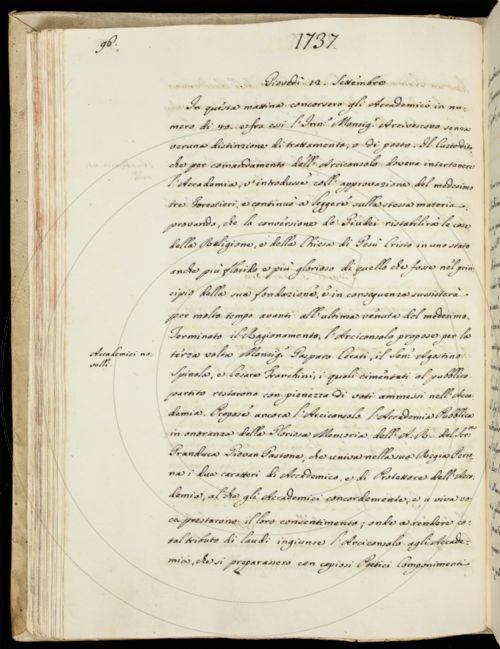 96.
1737.
Giovedì 12. Settembre
In questa mattina concorsero gli Accademici in nu-
mero di 40. e fra essi l'Inn.º Monsig.r Arcivescovo senza
veruna distinzione di trattamento, o di posto. Il Custode,
che per comandamento dell'Arciconsolo doveva intertenere
l'Accademia, v'introdusse coll'approvazione del medesimo
tre Forestieri, e continuò a leggere sulla stessa materia
provando, che la conversione de' Giudei ristabilirà le cose
della Religione, e della Chiesa di Gesù Cristo in uno stato
anche più florido, e più glorioso di quello che fosse nel prin-
cipio della sua fondazione, e in conseguenza sussisterà
per molto tempo avanti all'ultima venuta del medesimo.
Terminato il Ragionamento, l'Arciconsolo propose per la
Accademici no-
velli.
terza volta Monsig.r Gasparo Cerati, il Sen. Agostino
Spinola, e Cesare Franchini, i quali cimentati al pubblico
partito restarono con pienezza di voti ammessi nell'Acca-
demia. Propose ancora l'Arciconsolo l'Accademia Pubblica
in onoranza della Gloriosa Memoria dell'A. R. del Ser.mo
Granduca Giovan Gastone, che univa nella sua Regia Perso-
na i due caratteri di Accademico, e di Protettore dell'Acca-
demia, al che gli Accademici concordemente, e a viva vo-
ce prestarono il loro consentimento; onde a rendere co-
tal tributo di laudi ingiunse l'Arciconsolo agli Accade-
mici, che si preparassero con copiosi Poetici Componimenti